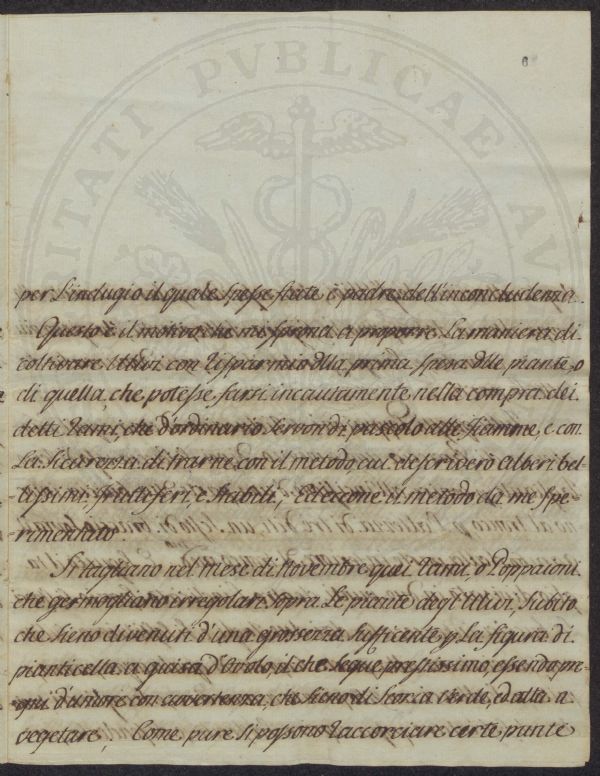 6
PVBLICAE
per l'indugio il quale spesse fiate è padre dell'inconcludenza.
Questo è il motivo che mi sprona a proporre La maniera di
coltivare Ulivi con risparmio della prima spesa delle piante, o
di quella, che potesse farsi incautamente nella compra dei
detti rami, che d'ordinario servon di pascolo alle fiamme, e con
La Sicurezza di trarne con il metodo cui descriverò Alberi bel-
-tissimi fruttiferi, e Stabili; Eccone il metodo da me Spe-
-rimentato.
Si tagliano nel mese di Novembre quei Rami, o Poppaioni
che germogliano irregolari sopra Le piante degl'Ulivi, Subito
che sieno divenuti d'una grossezza sufficente p la figura di
pianticella a guisa d'Ovolo, il che segue prestissimo, essendo pre-
d'umore con avvertenza, che sieno di Scorza verde, ed atta a
vegetare, Come pure si possono raccorciare certe punte